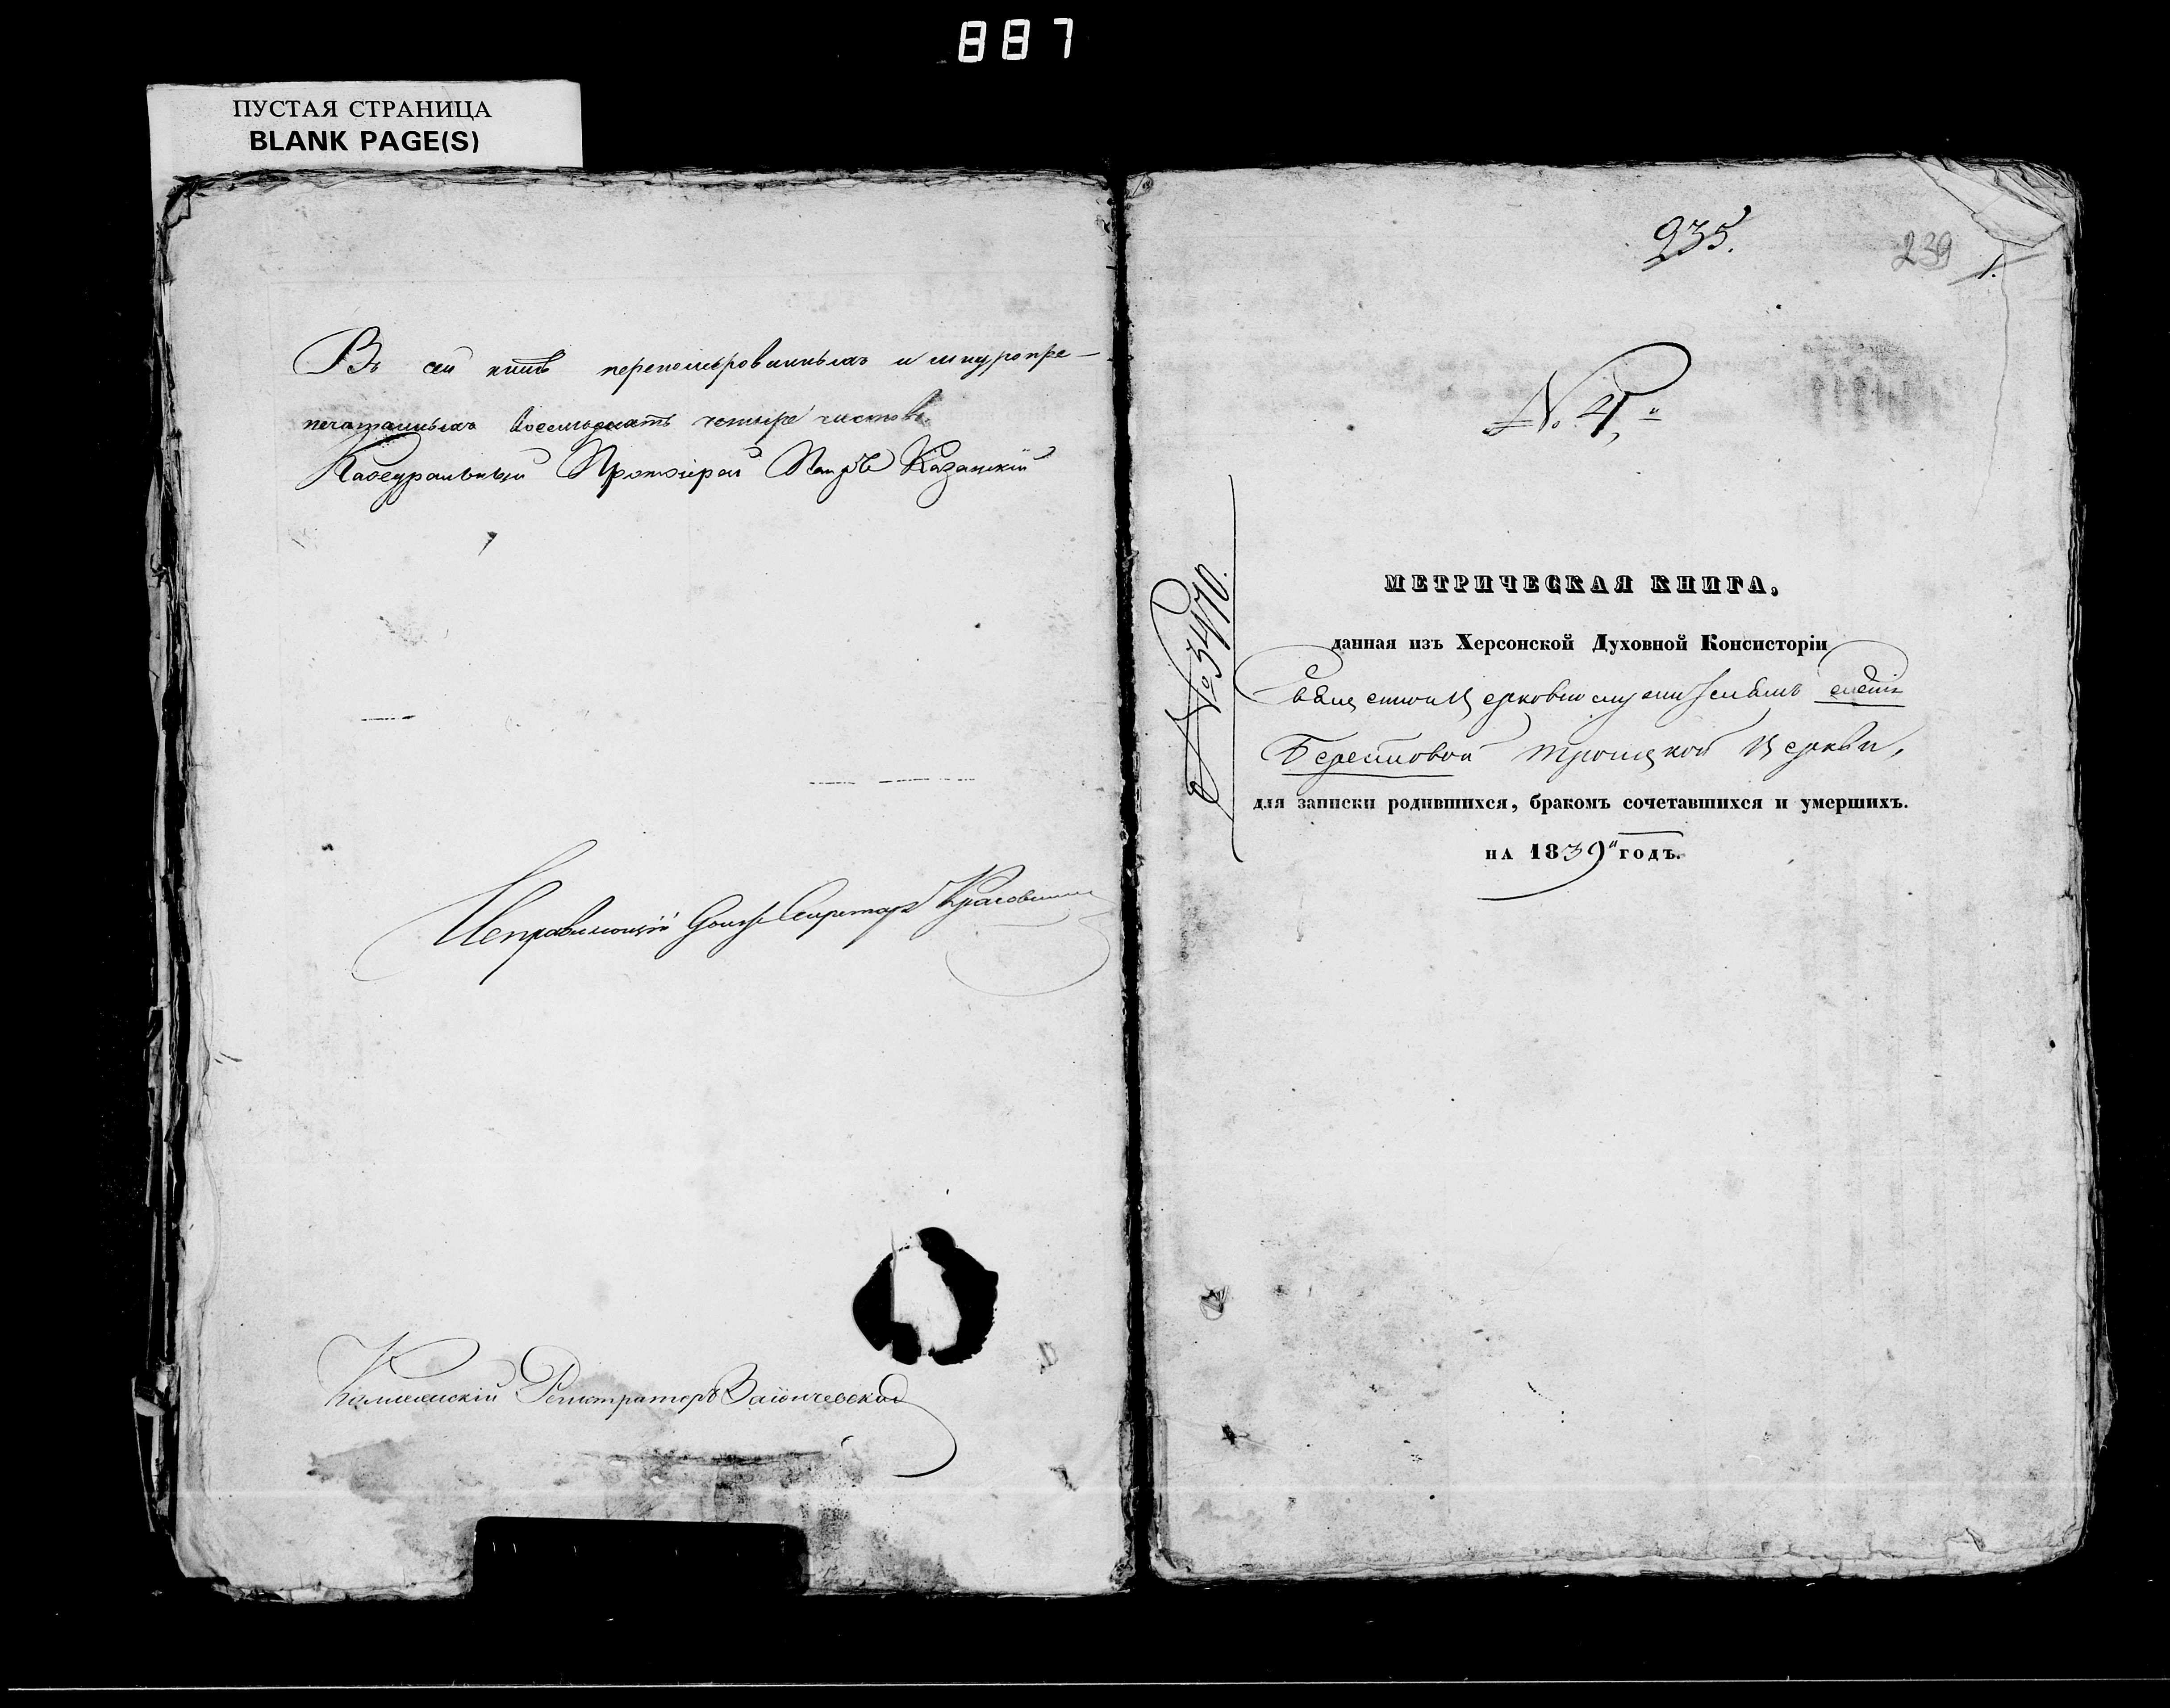 887
ПУСТАЯ СТРАНИЦА
BLANK PAGE(S)
Въ сей книгѣ перенумерованныхъ и шнуропре-
печатанныхъ восемьдесятъ четыре листовъ
Каѳедральный Протоіерей Петръ Казанскій
Исправляющій Должн. Секретаря
Коллежскій Регистраторъ Заіончевскій
235.
239
1.
№ 4.
№ 3470.
МЕТРИЧЕСКАЯ КНИГА,
данная изъ Херсонской Духовной Консисторіи
Священно и Церковно служителямъ
Берестовой Троицкой Церкви,
для записки родившихся, бракомъ сочетавшихся и умершихъ.
НА 1839й ГОДЪ.